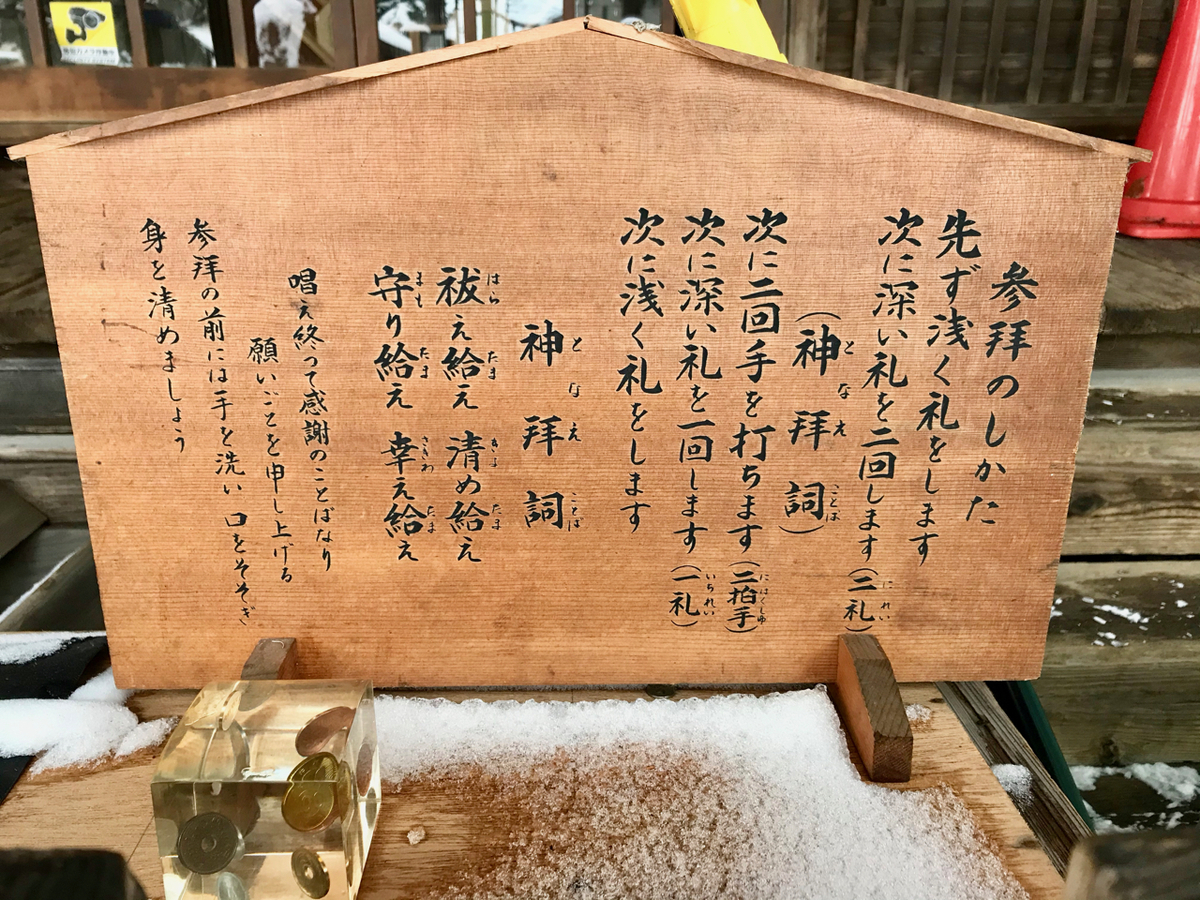 参拝のしかた
先ず浅く礼をします
次に深い礼を二回します(二礼)
(神拝詞)
次に二回手を打ちます(二拍手)
次に深い礼を一回します(一礼)
次に浅く礼をします
神拝詞
祓え給え 清め給え
守り給え 幸え給え
唱え終って感謝のことばなり
願いごとを申し上げる
参拝の前には手を洗い 口をそそぎ
身を清めましょう